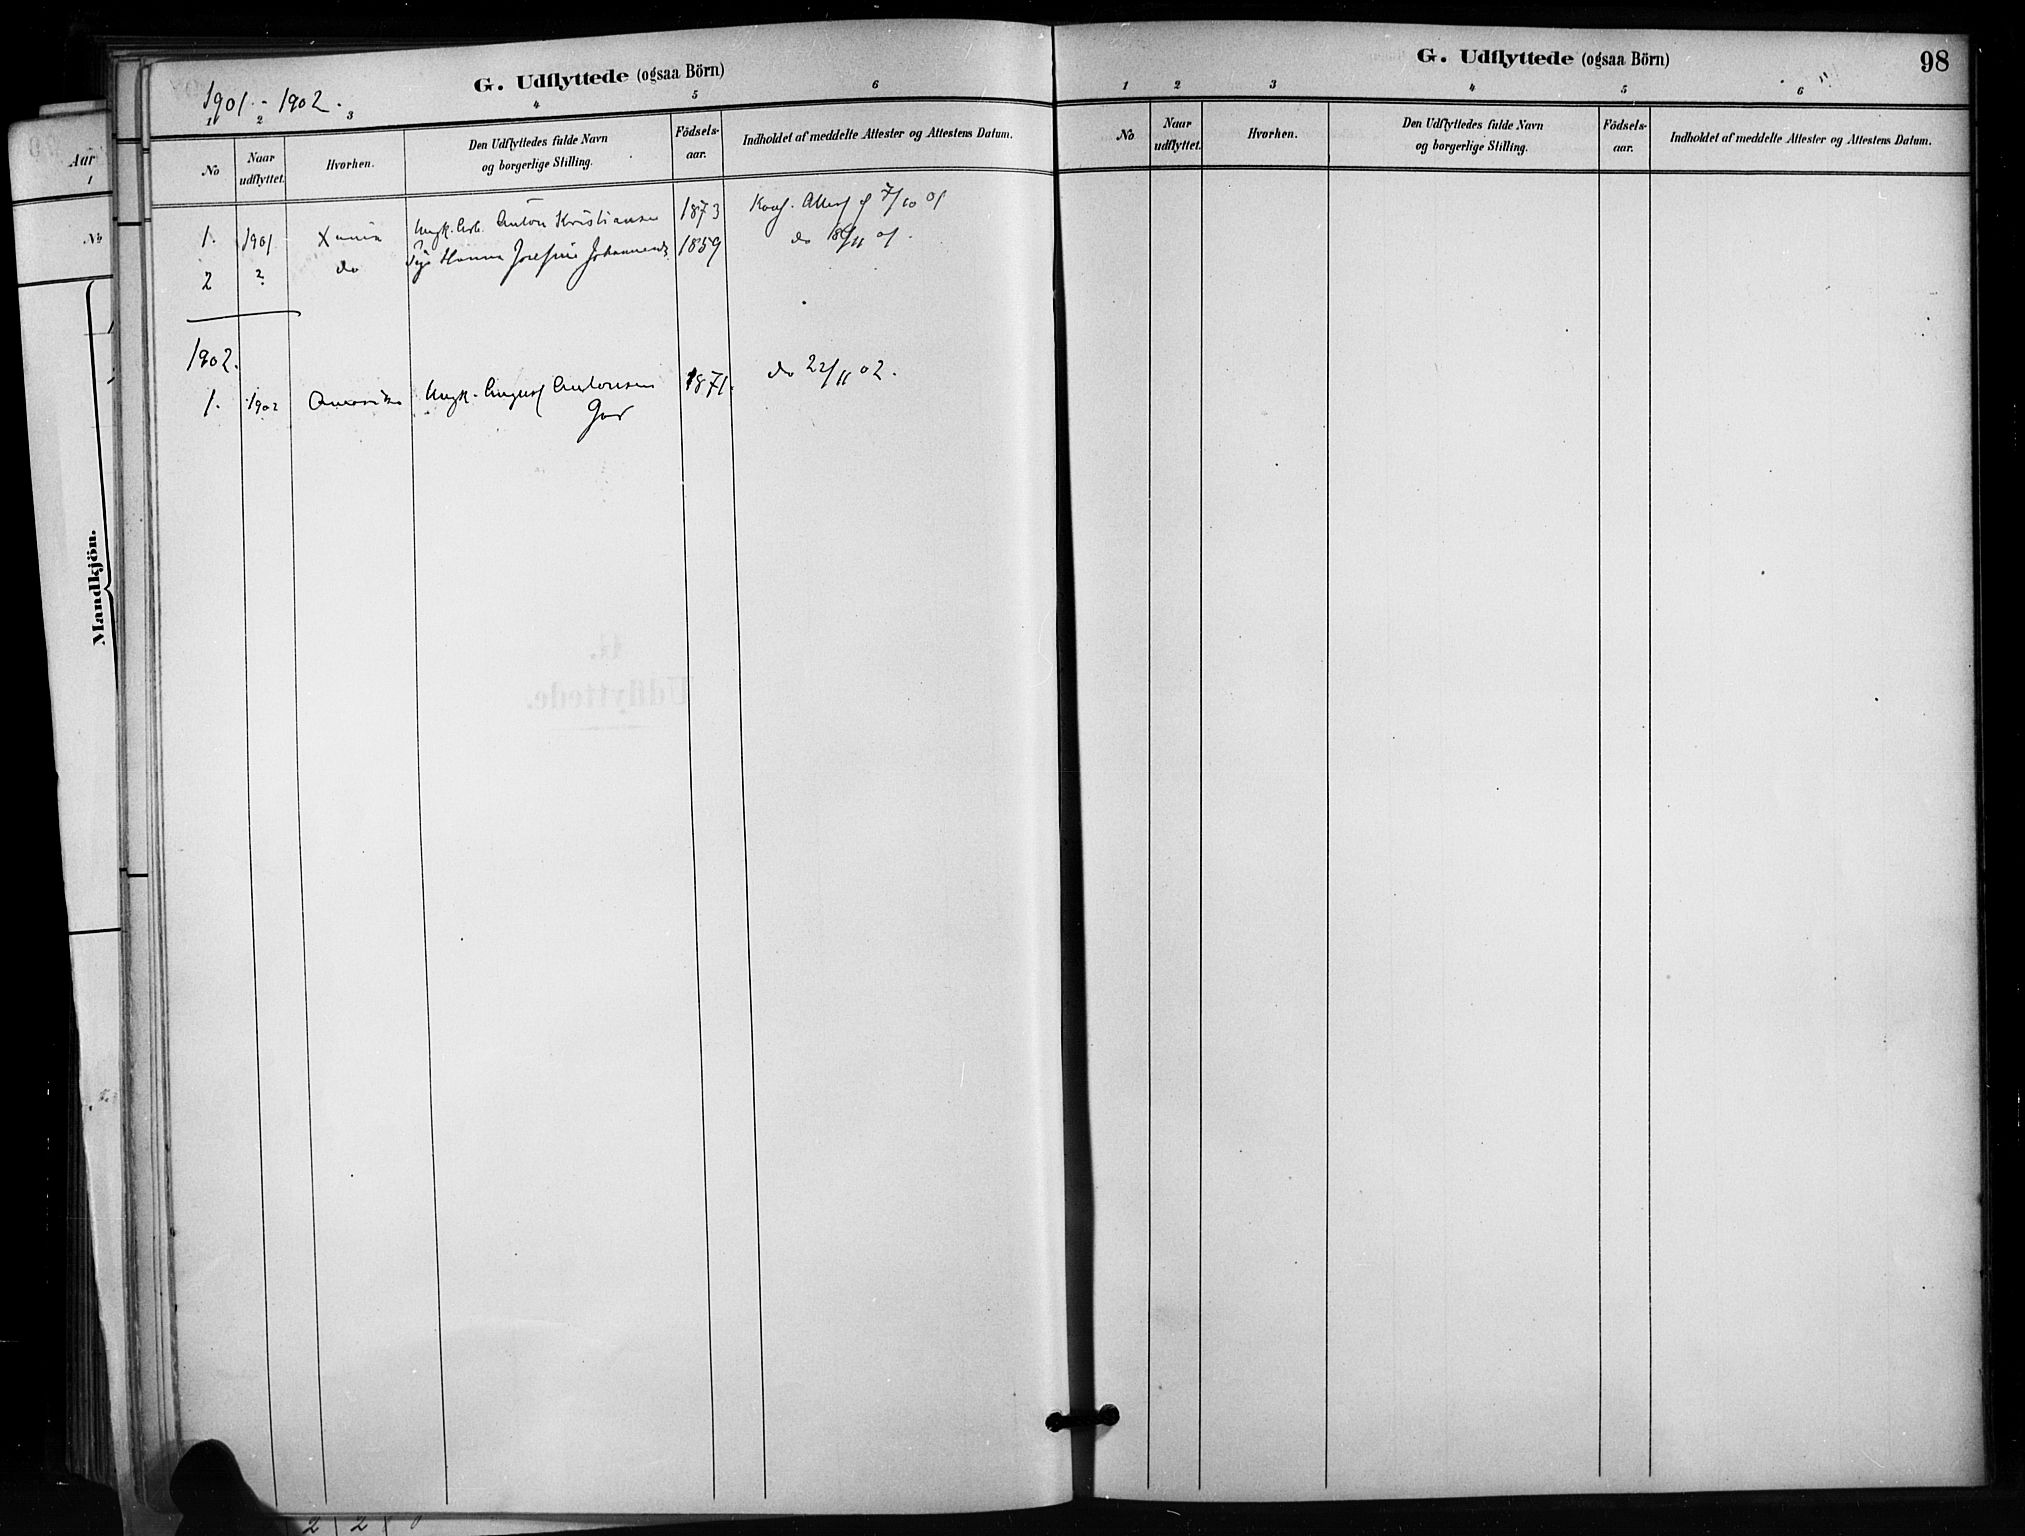 1901 - 1902.
G. Udflyttede (ogsaa Börn)
1 2 3 4 5 6
No
Naar udflyttet.
Hvorhen.
Den Udflyttedes fulde Navn
og borgerlige Stilling.
Födsels-
aar.
Indholdet af meddelte Attester og Attestens Datum.
1. 1901 Xania Ungk. Arb. Anton Kristiansen 1873 7/10 01
2 ? do Pige Hanna Josefine Johannesd. 1859 do 18/11 01.
1902.
1. 1902 Amerika Ungk. August Antonsen 1871. do 22/11 02.
G. Udflyttede (ogsaa Börn)
98
1 2 3 4 5 6
No
Naar
udflyttet.
Hvorhen.
Den Udflyttedes fulde Navn
og borgerlige Stilling.
Födsels-
aar.
Indholdet af meddelte Attester og Attestens Datum.
Aar
1
No
Mandkjön.
Udflyttede.